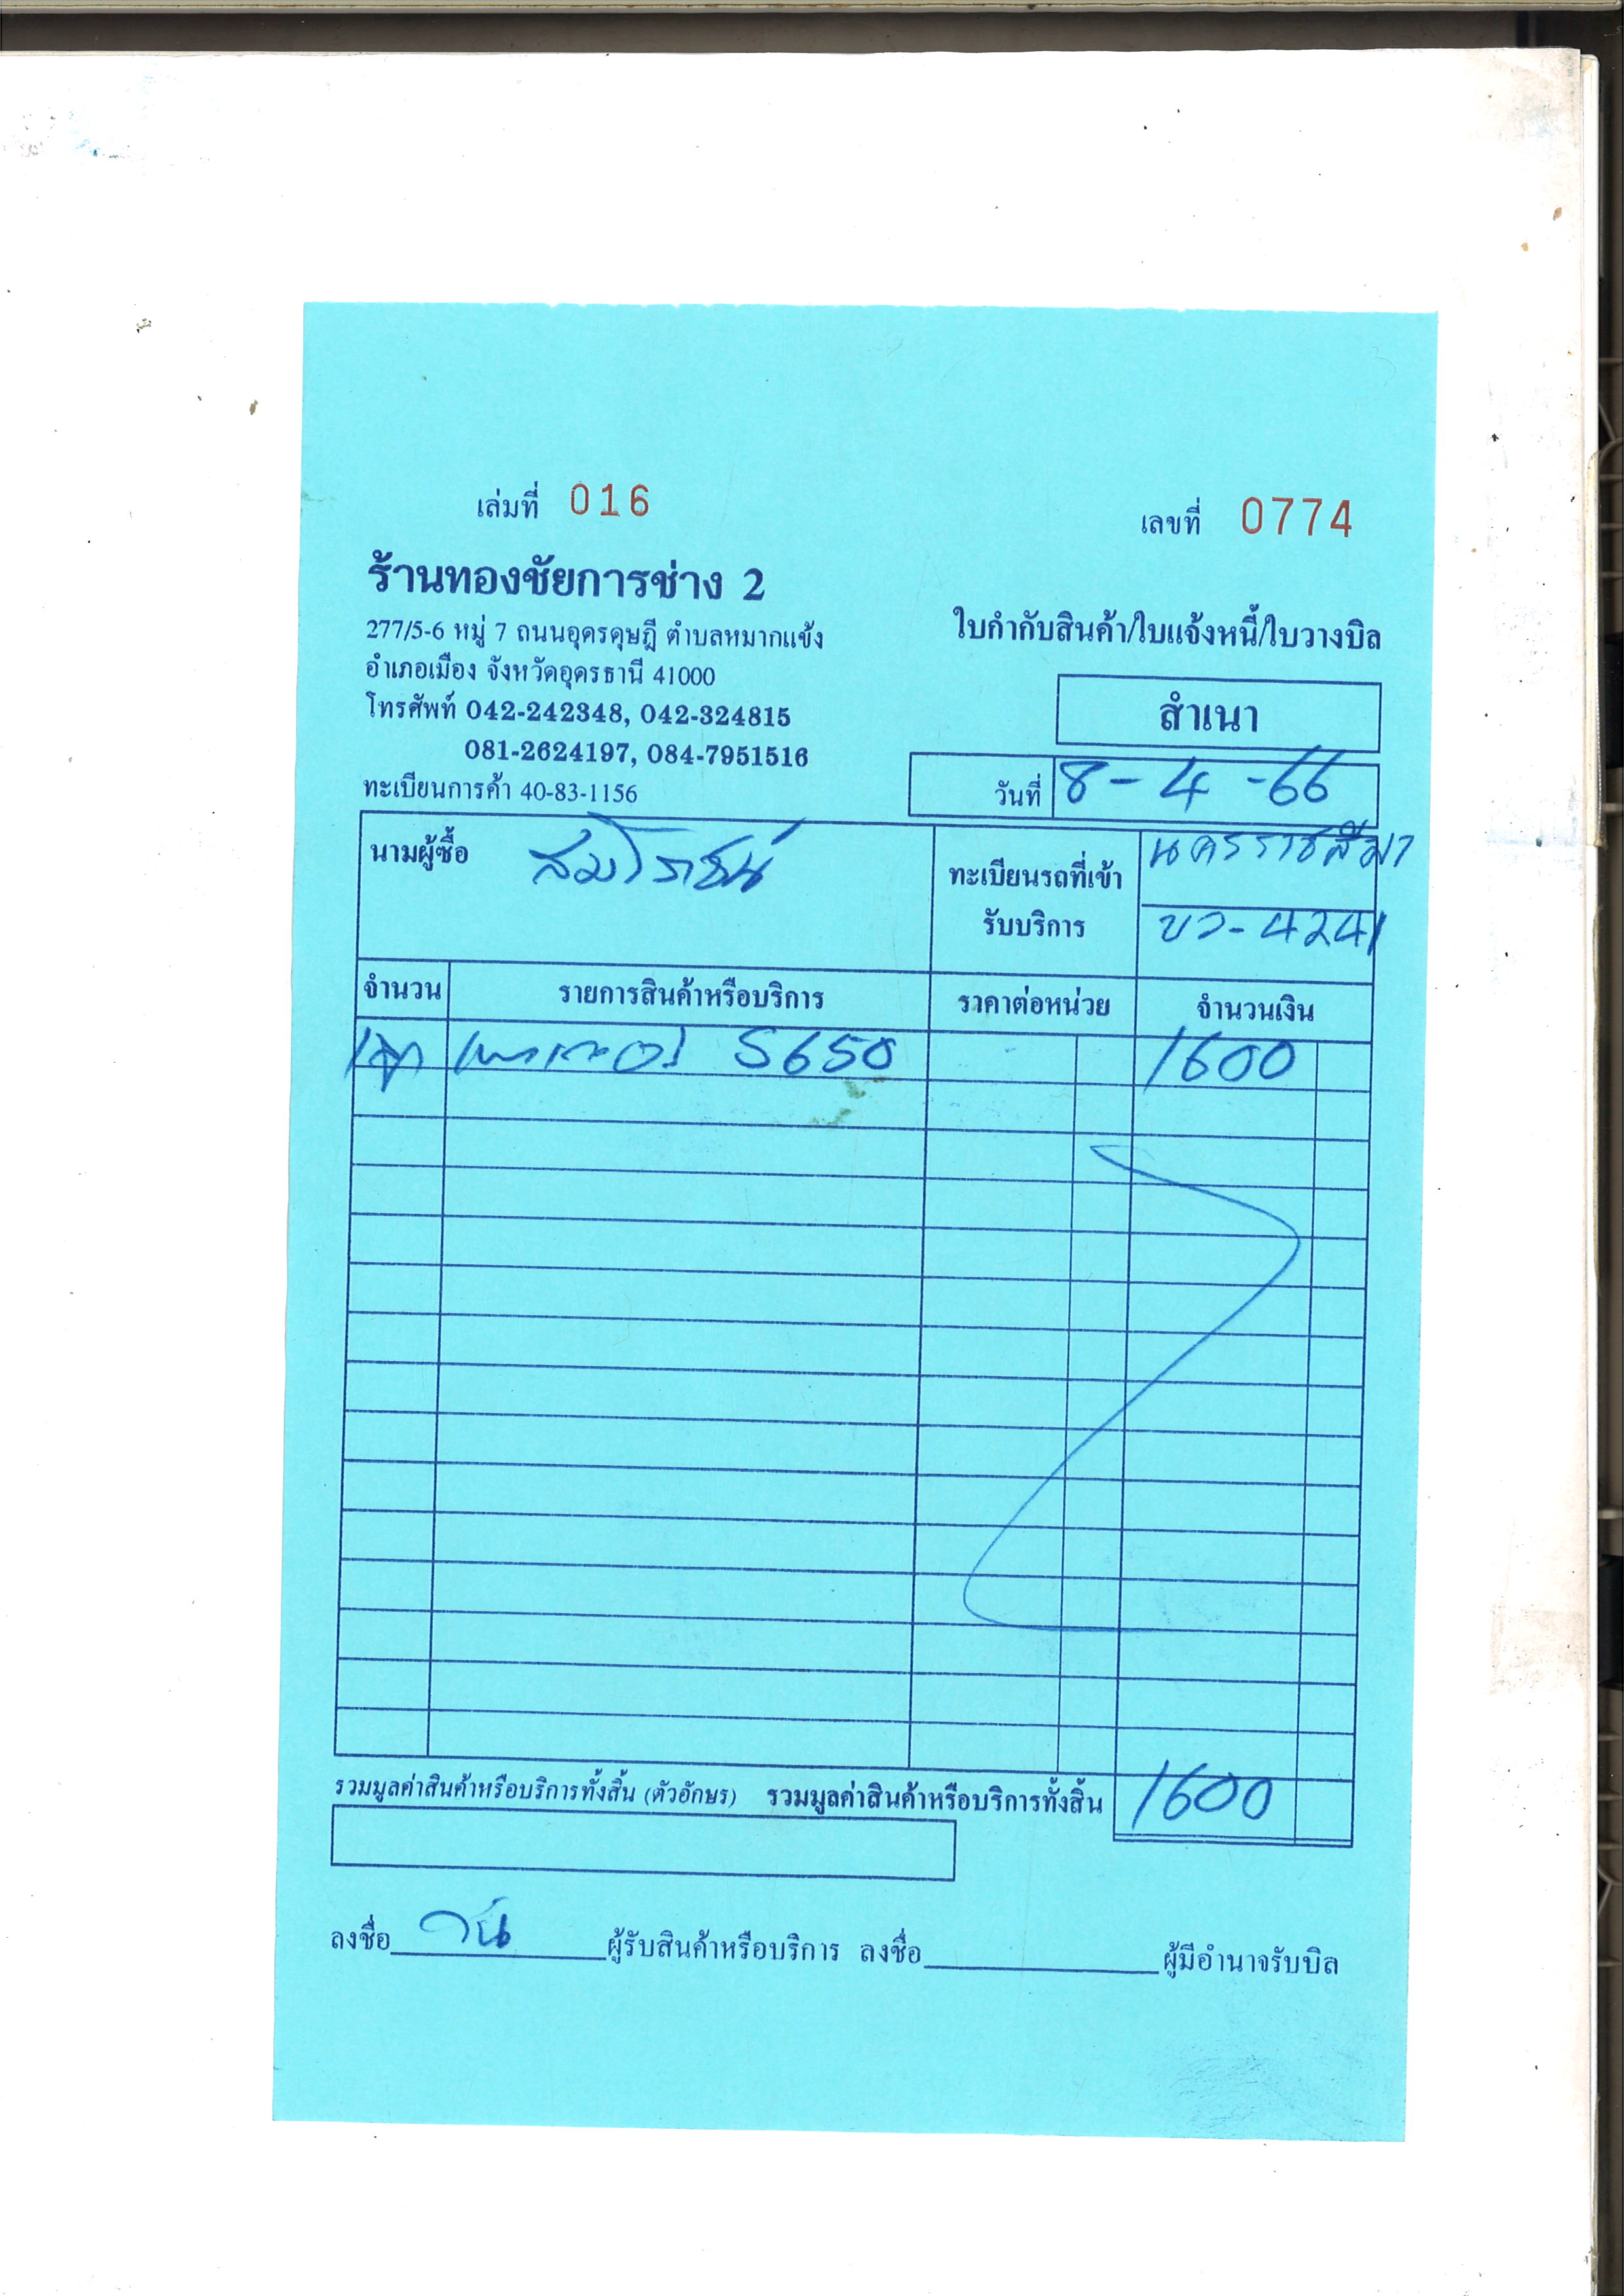 เล่มที่ 016
เลขที่ 0774
ร้านทองชัยการช่าง 2
277/5-6 หมู่ 7 ถนนอุดรดุษฎี ตำบลหมากแข้ง
อำเภอเมือง จังหวัดอุดรธานี 41000
โทรศัพท์ 042-242348, 042-324815
081-2624197, 084-7951516
ทะเบียนการค้า 40-83-1156
ใบกำกับสินค้า/ใบแจ้งหนี้/ใบวางบิล
สำเนา
วันที่ 8-4-66
นามผู้ซื้อ
ทะเบียนรถที่เข้า
รับบริการ
นครราชสีมา
ขว-4241
จำนวน รายการสินค้าหรือบริการ ราคาต่อหน่วย จำนวนเงิน
5650 1600
รวมมูลค่าสินค้าหรือบริการทั้งสิ้น (ตัวอักษร) รวมมูลค่าสินค้าหรือบริการทั้งสิ้น 1600
ลงชื่อ ผู้รับสินค้าหรือบริการ ลงชื่อ ผู้มีอำนาจรับบิล